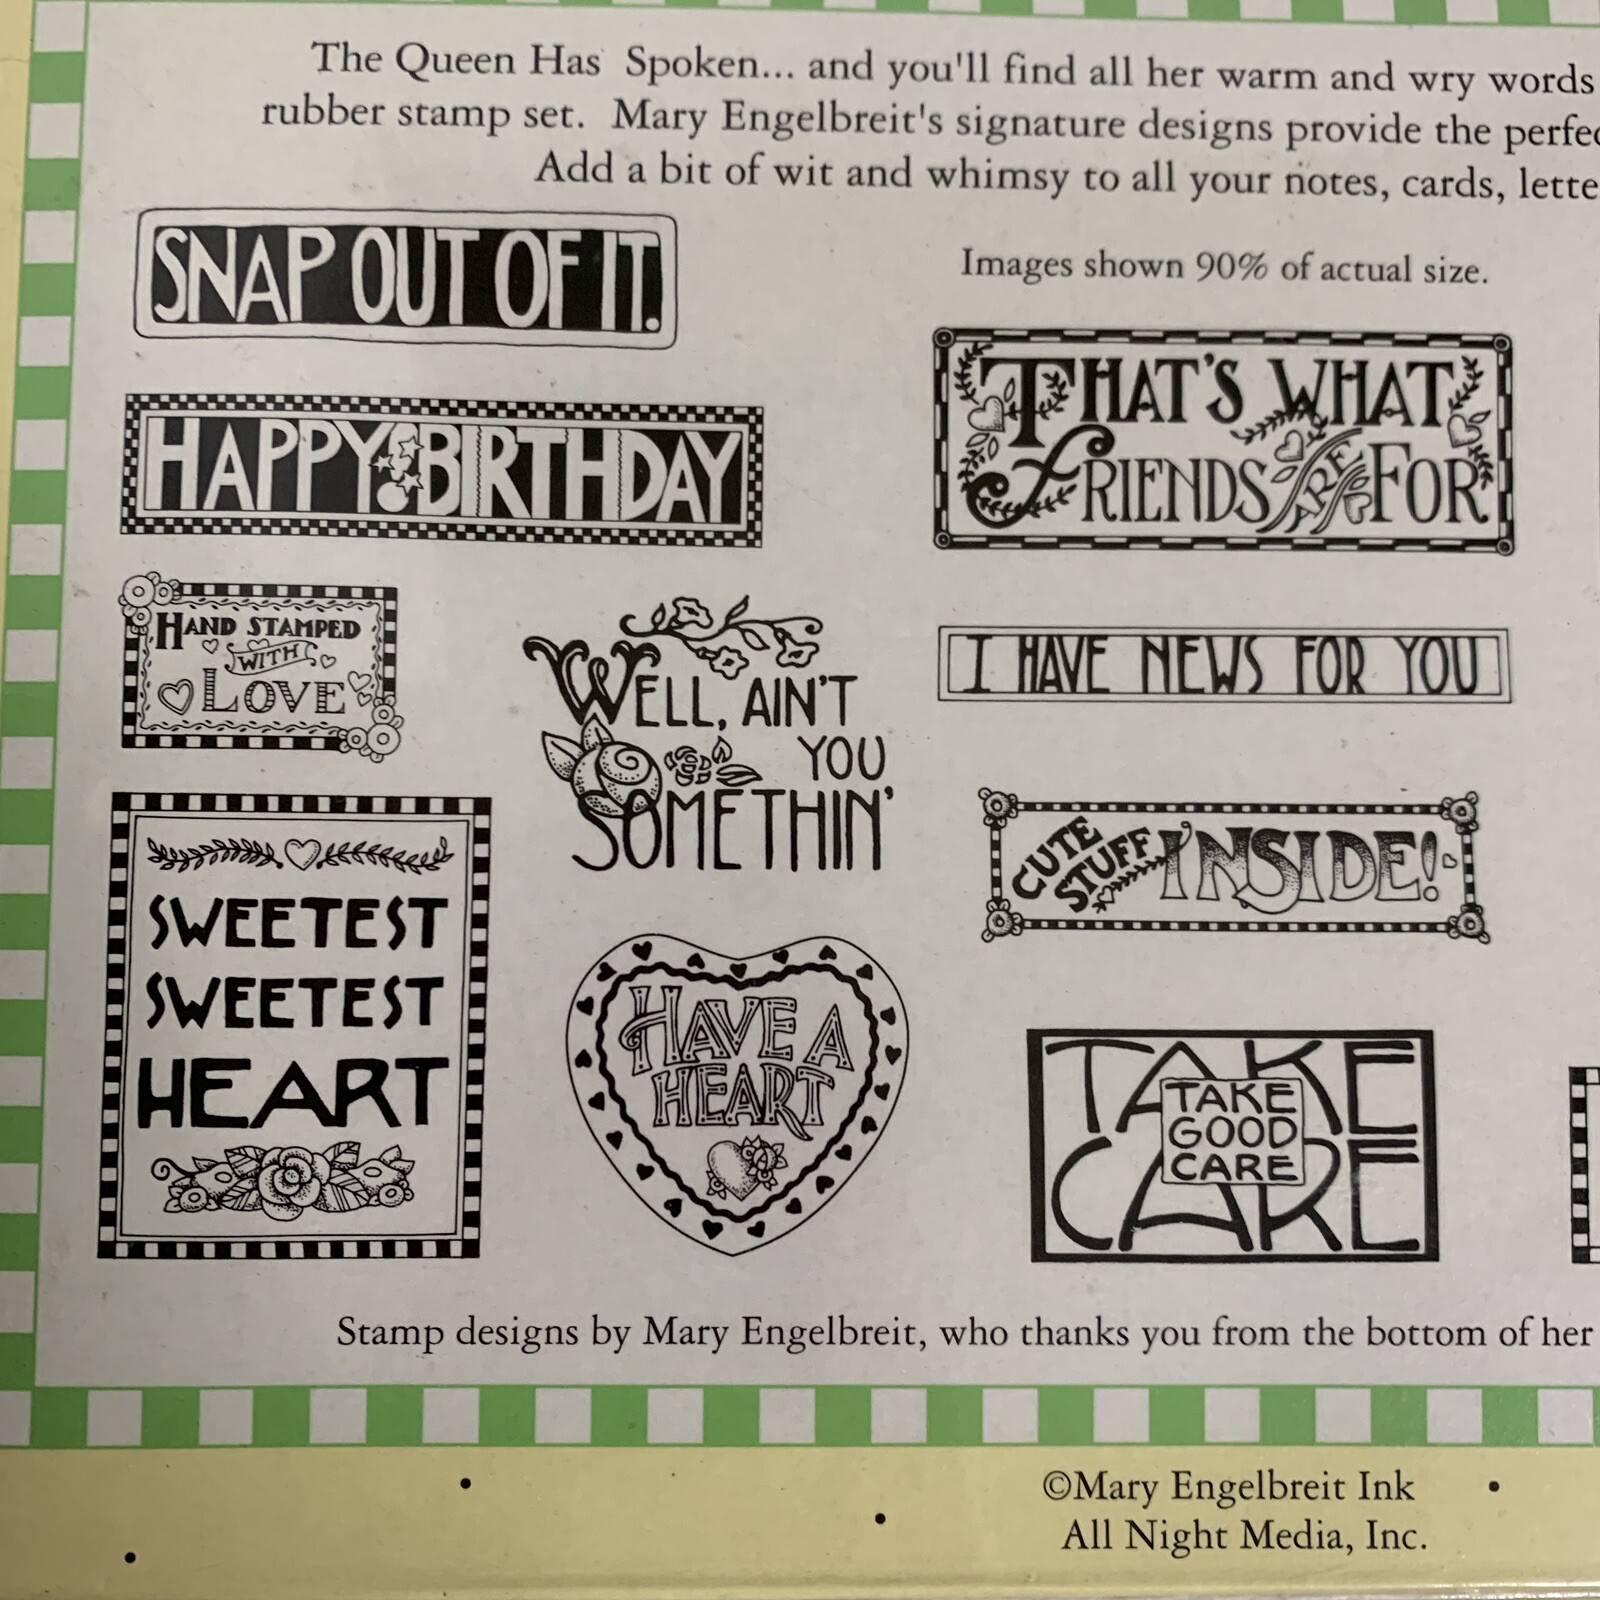 The Queen Has Spoken... and you'll find all her warm and wry words
rubber stamp set. Mary Engelbreit's signature designs provide the
Add a bit of wit and whimsy to all your notes, cards,
SNAP OUT OF IT.
Images shown 90% of actual size.
HAPPY BIRTHDAY
THAT'S WHAT
FRIENDS ARE FOR
HAND STAMPED
WITH
LOVE
WELL, AIN'T
YOU
SOMETHIN'
I HAVE NEWS FOR YOU
CUTE
STUFF INSIDE!
SWEETEST
SWEETEST
HEART
HAVE A
HEART
TAKE
TAKE
GOOD
CARE
CARE
Stamp designs by Mary Engelbreit, who thanks you from the bottom of her
©Mary Engelbreit Ink
All Night Media, Inc.